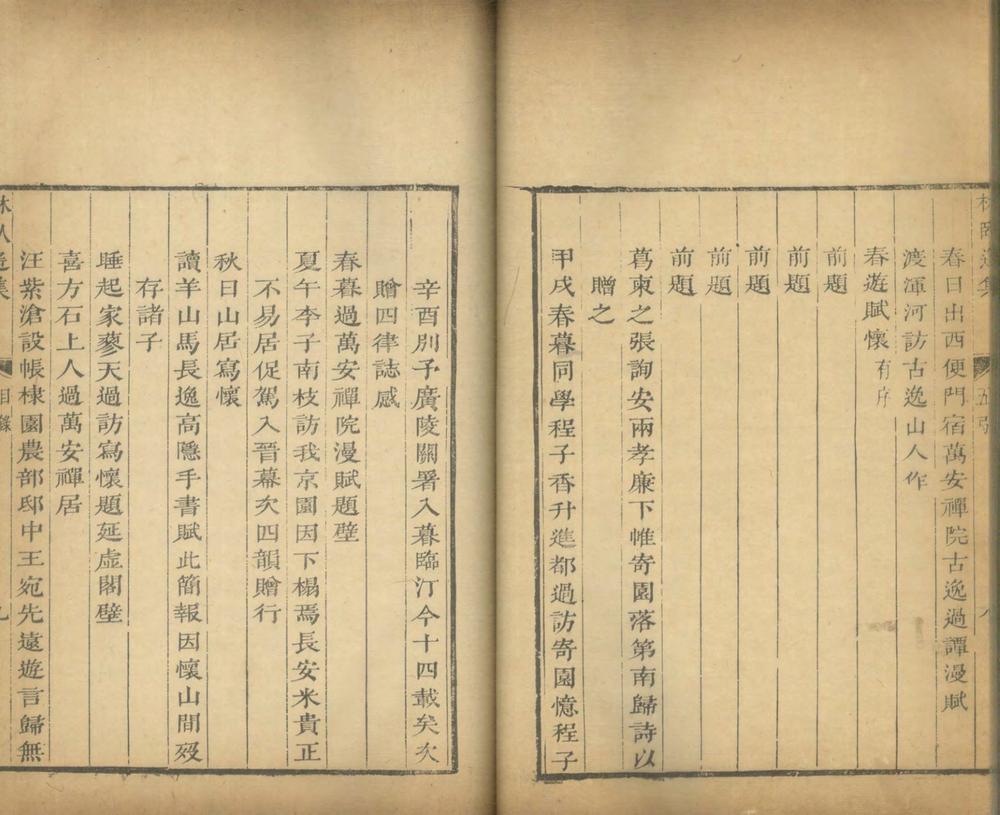 春日出西便門宿萬安禪院古逸過譚漫賦
渡渾河訪古逸山人作
春遊賦懷有序
前題
前題
前題
前題
前題
葛東之張詢安兩孝廉下帷寄園落第南歸詩以
贈之
甲戌春暮同學程子香升進都過訪寄園憶程子
辛酉別予廣陵關署入暮臨汀今十四載矣次
贈四律誌感
春暮過萬安禪院漫賦題壁
夏午李子南枝訪我京園因下榻焉長安米貴正
不易居促駕入晉幕次四韻贈行
秋日山居寫懷
讀羊山馬長逸高隱手書賦此簡報因懷山間歿
存諸子
睡起家蓼天過訪寫懷題延虛閣壁
喜方石上人過萬安禪居
汪紫滄設帳棣園農部邸中王宛先遠遊言歸無